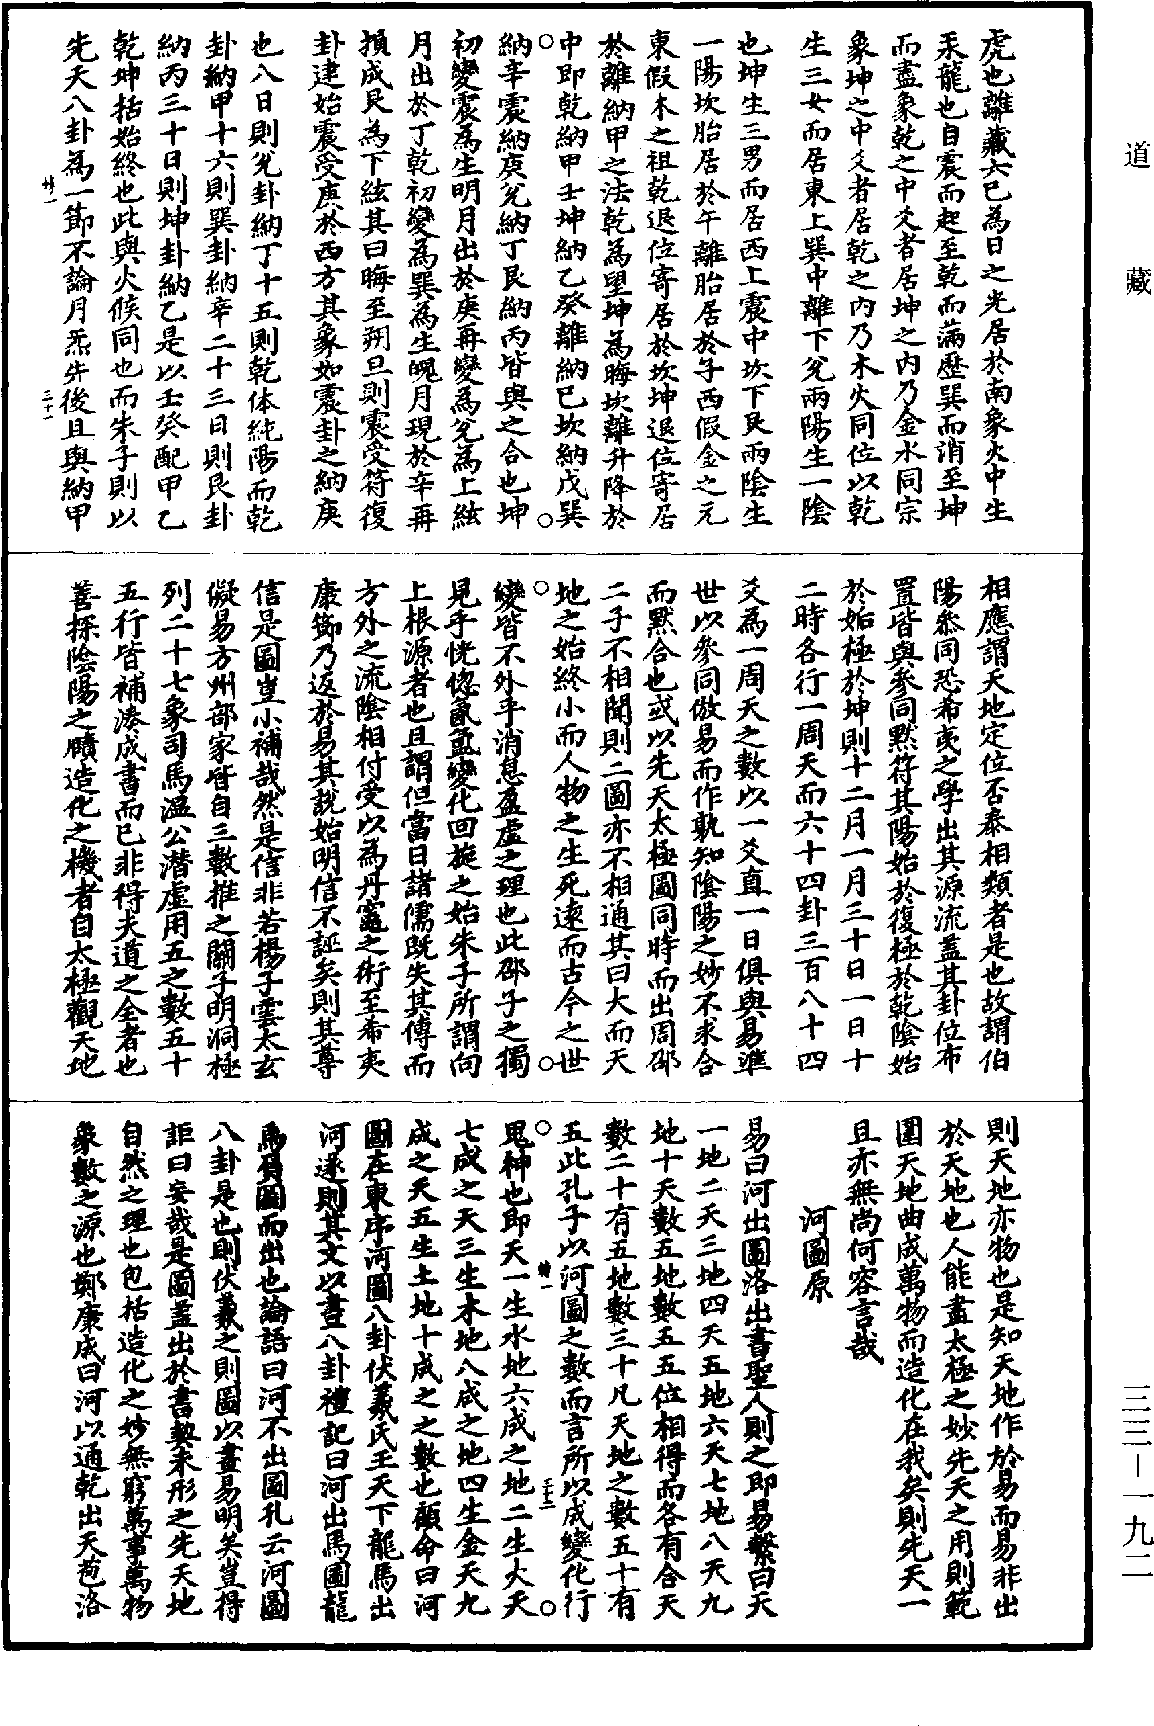 道藏
三三－一九二
虎也離藏六巳為日之光居於南象火中生
汞龍也自震而起至乾而滿歷巽而消至坤
而盡象乾之中爻者居坤之內乃金水同宗
象坤之中爻者居乾之內乃木火同位以乾
生三女而居東上巽中離下兌兩陽生一陰
也坤生三男而居西上震中坎下艮兩陰生
一陽坎胎居於午離胎居於子西假金之元
東假木之祖乾退位寄居於坎坤退位寄居
於離納甲之法乾為望坤為晦坎離升降於
中即乾納甲壬坤納乙癸離納巳坎納戊巽
納辛震納庚兌納丁艮納丙皆與之合也坤
初變震為生明月出於庚再變為兌為上絃
月出於丁乾初變為巽為生魄月現於辛再
損成艮為下絃其曰晦至朔旦則震受符復
卦建始震受庚於西方其象如震卦之納庚
也八日則兌卦納丁十五則乾体純陽而乾
卦納甲十六則巽卦納辛二十三日則艮卦
納丙三十日則坤卦納乙是以壬癸配甲乙
乾坤括始終也此與火候同也而朱子則以
先天八卦為一節不論月炁先後且與納甲
相應謂天地定位否泰相類者是也故謂伯
陽叅同恐希夷之學出其源流蓋其卦位布
置皆與參同默符其陽始於復極於乾陰始
於姤極於坤則十二月一月三十日一日十
二時各行一周天而六十四卦三百八十四
爻為一周天之數以一爻直一日俱與易準
世以參同倣易而作孰知陰陽之妙不求合
而默合也或以先天太極圖同時而出周邵
二子不相聞則二圖亦不相通其曰大而天
地之始終小而人物之生死遠而古今之世
變皆不外乎消息盈虛之理也此邵子之獨
見乎恍惚氤氳變化回旋之始朱子所謂向
上根源者也且謂但當日諸儒既失其傳而
方外之流陰相付受以為丹竈之術至希夷
康節乃返於易其說始明信不誣矣則其尊
信是圖豈小補哉然是信非若楊子雲太玄
儗易方州部家皆自三數推之關子明洞極
列二十七象司馬溫公潛虛用五之數五十
五行皆補湊成書而已非得夫道之全者也
善探陰陽之賾造化之機者自太極觀天地
則天地亦物也是知天地作於易而易非出
於天地也人能盡太極之妙先天之用則範
圍天地曲成萬物而造化在我矣則先天一
且亦無尚何容言哉
河圖原
易曰河出圖洛出書聖人則之即易繫曰天
一地二天三地四天五地六天七地八天九
地十天數五地數五五位相得而各有合天
數二十有五地數三十凡天地之數五十有
五此孔子以河圖之數而言所以成變化行
鬼神也即天一生水地六成之地二生火天
七成之天三生木地八成之地四生金天九
成之天五生土地十成之之數也顧命曰河
圖在東序河圖八卦伏羲氏王天下龍馬出
河遂則其文以畫八卦禮記曰河出馬圖龍
馬負圖而出也論語曰河不出圖孔云河圖
八卦是也則伏羲之則圖以畫易明矣豈得
詎曰妄哉是圖蓋出於書契未形之先天地
自然之理也包括造化之妙無窮萬事萬物
象數之源也鄭康成曰河以通乾出天苞洛